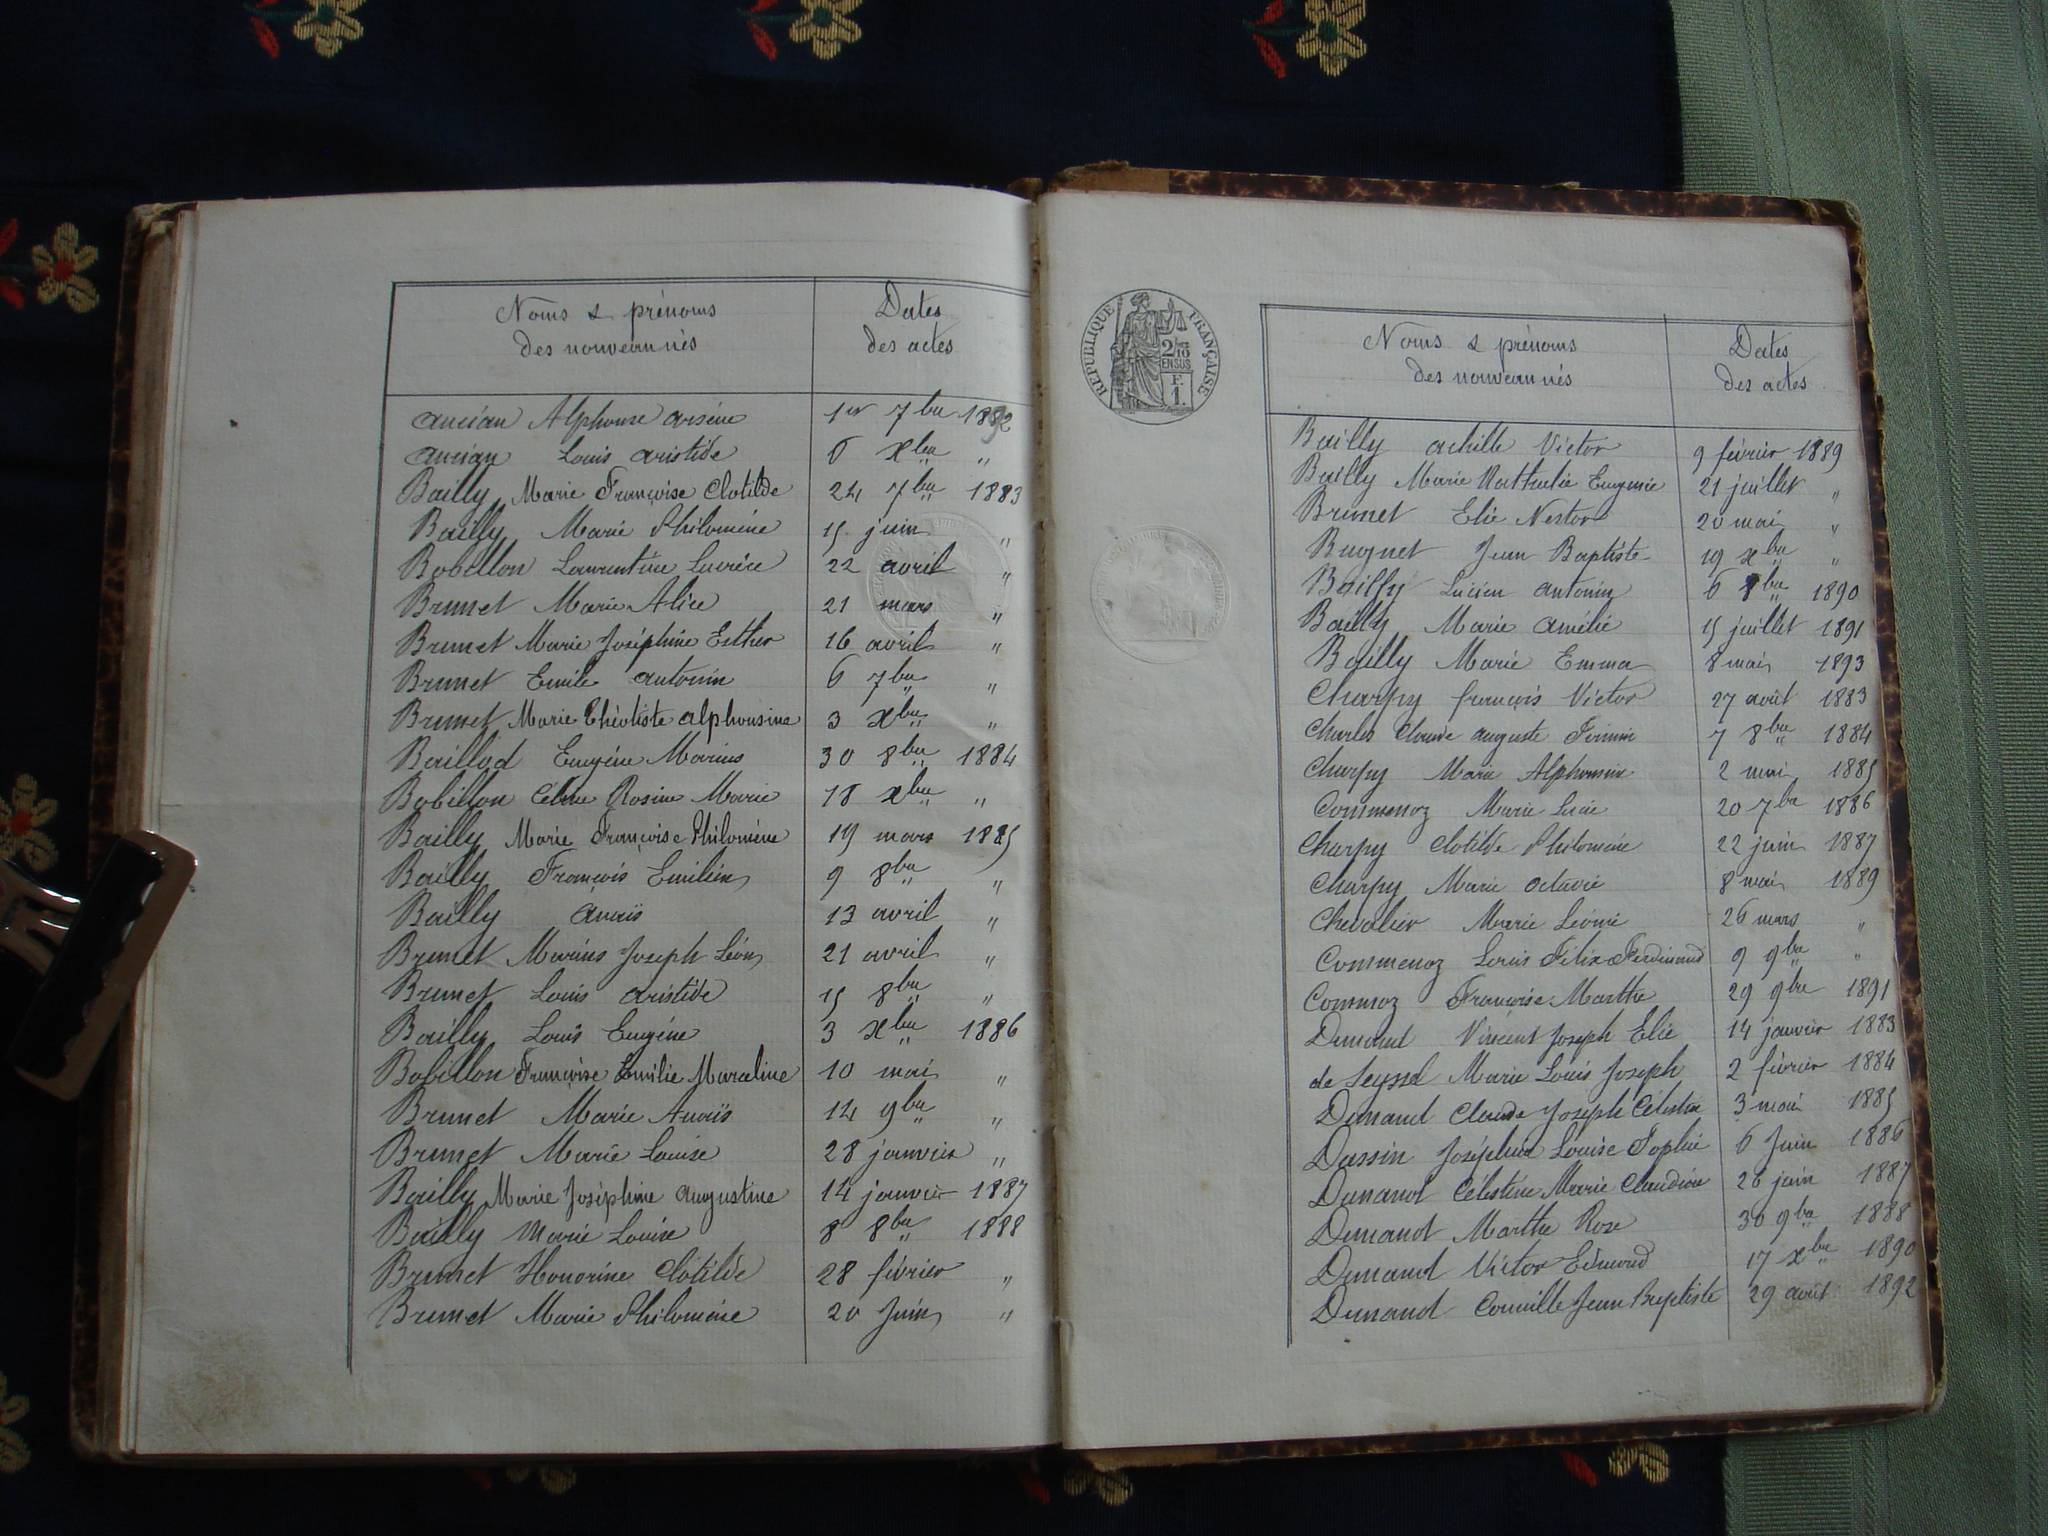 Noms & prénoms
des nouveau nés
Dates
des actes
Ancian Alphonse Arsène 1er 7bre 1892
Ancian Louis Aristide 6 xbre "
Bailly Marie Françoise Clotilde 24 7bre 1883
Bailly Marie Philomène 15 juin "
Bobillon Laurentine Lucrèce 22 avril "
Brunet Marie Alice 21 mars "
Brunet Marie Joséphine Esther 16 avril "
Brunet Emile Antonin 6 7bre "
Brunet Marie Théotiste Alphonsine 3 xbre "
Baillod Eugène Marius 30 8bre 1884
Bobillon Céline Rosine Marie 18 xbre "
Bailly Marie Françoise Philomène 19 mars 1885
Bailly François Emilien 9 8bre "
Bailly Anaïs 13 avril "
Brunet Marius Joseph Léon 21 avril "
Brunet Louis Aristide 15 8bre "
Bailly Louis Eugène 3 xbre 1886
Bobillon Françoise Emilie Marceline 10 mai "
Brunet Marie Anaïs 14 9bre "
Brunet Marie Louise 28 janvier "
Bailly Marie Joséphine Augustine 14 janvier 1887
Bailly Marie Louise 8 8bre 1888
Brunet Honorine Clotilde 28 février "
Brunet Marie Philomène 20 Juin "
RÉPUBLIQUE FRANÇAISE
2/10
EN SUS
F.
1.
Noms & prénoms
des nouveau nés
Dates
des actes
Bailly Achille Victor 9 février 1889
Bailly Marie Nathalie Eugénie 21 juillet "
Brunet Elie Nestor 20 mai "
Bugnet Jean Baptiste 19 xbre "
Bailly Lucien Antonin 6 8bre 1890
Bailly Marie Amélie 15 juillet 1891
Bailly Marie Emma 8 mai 1893
Charpy François Victor 27 août 1883
Charles Claude Auguste Firmin 7 8bre 1884
Charpy Marie Alphonsine 2 mai 1885
Commenoz Marie Lucie 20 7bre 1886
Charpy Clotilde Philomène 22 juin 1887
Charpy Marie Octavie 8 mai 1889
Chevalier Marie Léonie 26 mars "
Commenoz Louis Félix Ferdinand 9 9bre "
Commoz Françoise Marthe 29 9bre 1891
Dunand Vincent Joseph Elie 14 janvier 1883
de Seyssel Marie Louis Joseph 2 février 1884
Dunand Claude Joseph Célestin 3 mai 1885
Dassin Joséphine Louise Sophie 6 Juin 1886
Dunand Célestine Marie Claudine 26 juin 1887
Dunand Marthe Rose 30 9bre 1888
Dunand Victor Edmond 17 xbre 1890
Dunand Camille Jean Baptiste 29 août 1892